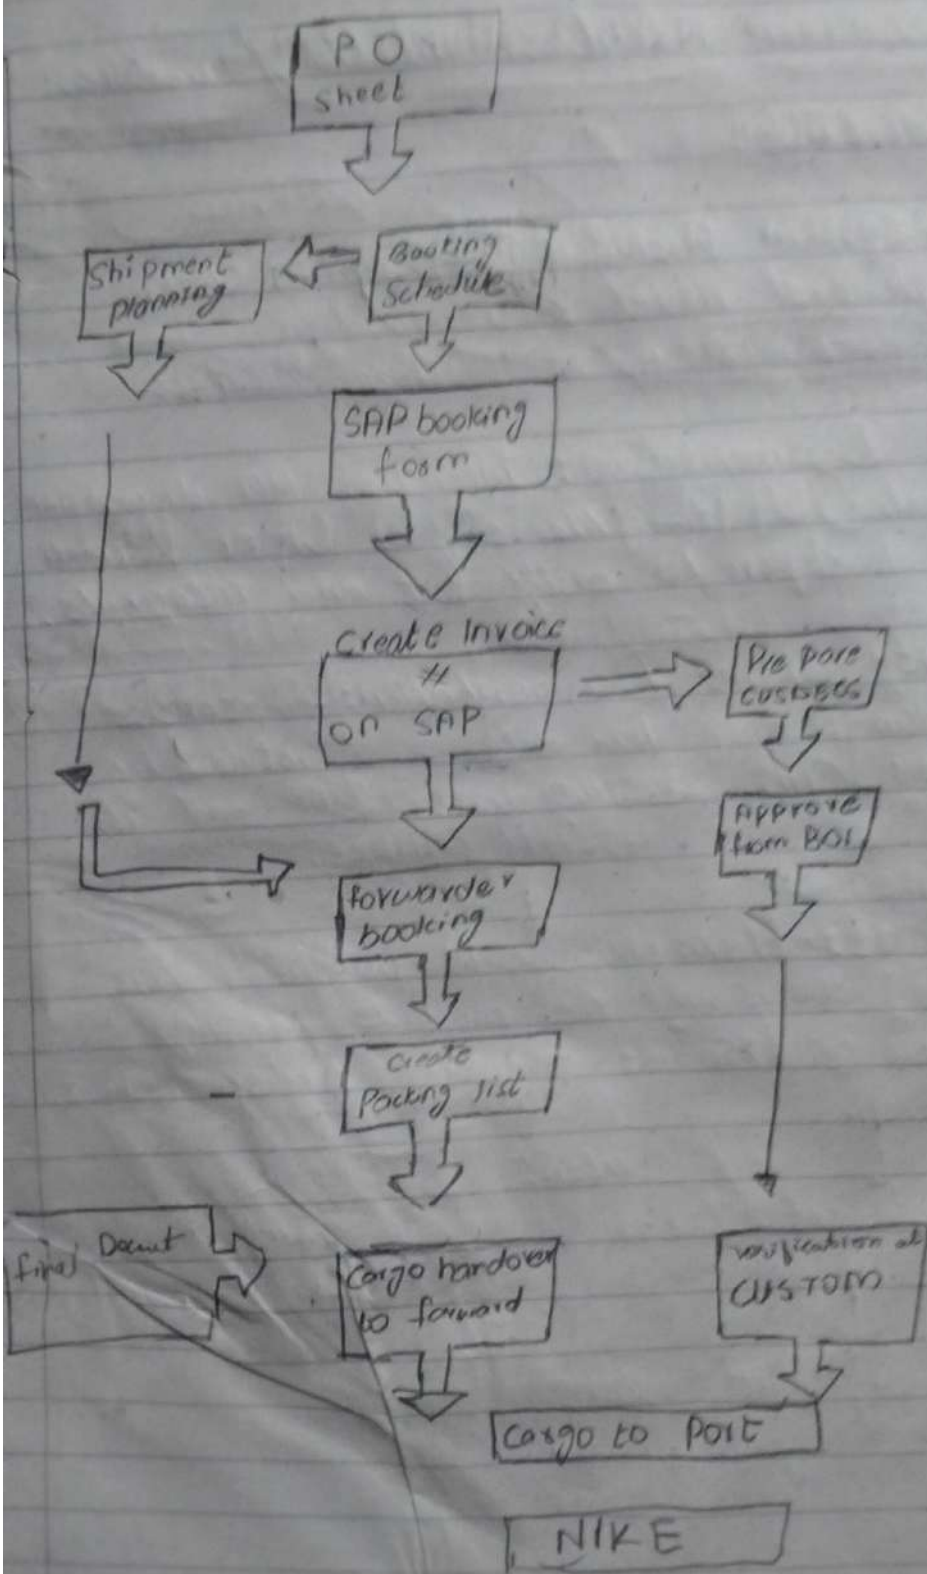 P O
Sheet
Shipment
planning
Booking
Schedule
SAP booking
form
Create Invoice
#
on SAP
Pre pare
Approve
from BOI
forwarder
booking
Create
Packing list
final Docut
Cargo handover
to forward
verification at
CUSTOM
Cargo to Port
NIKE